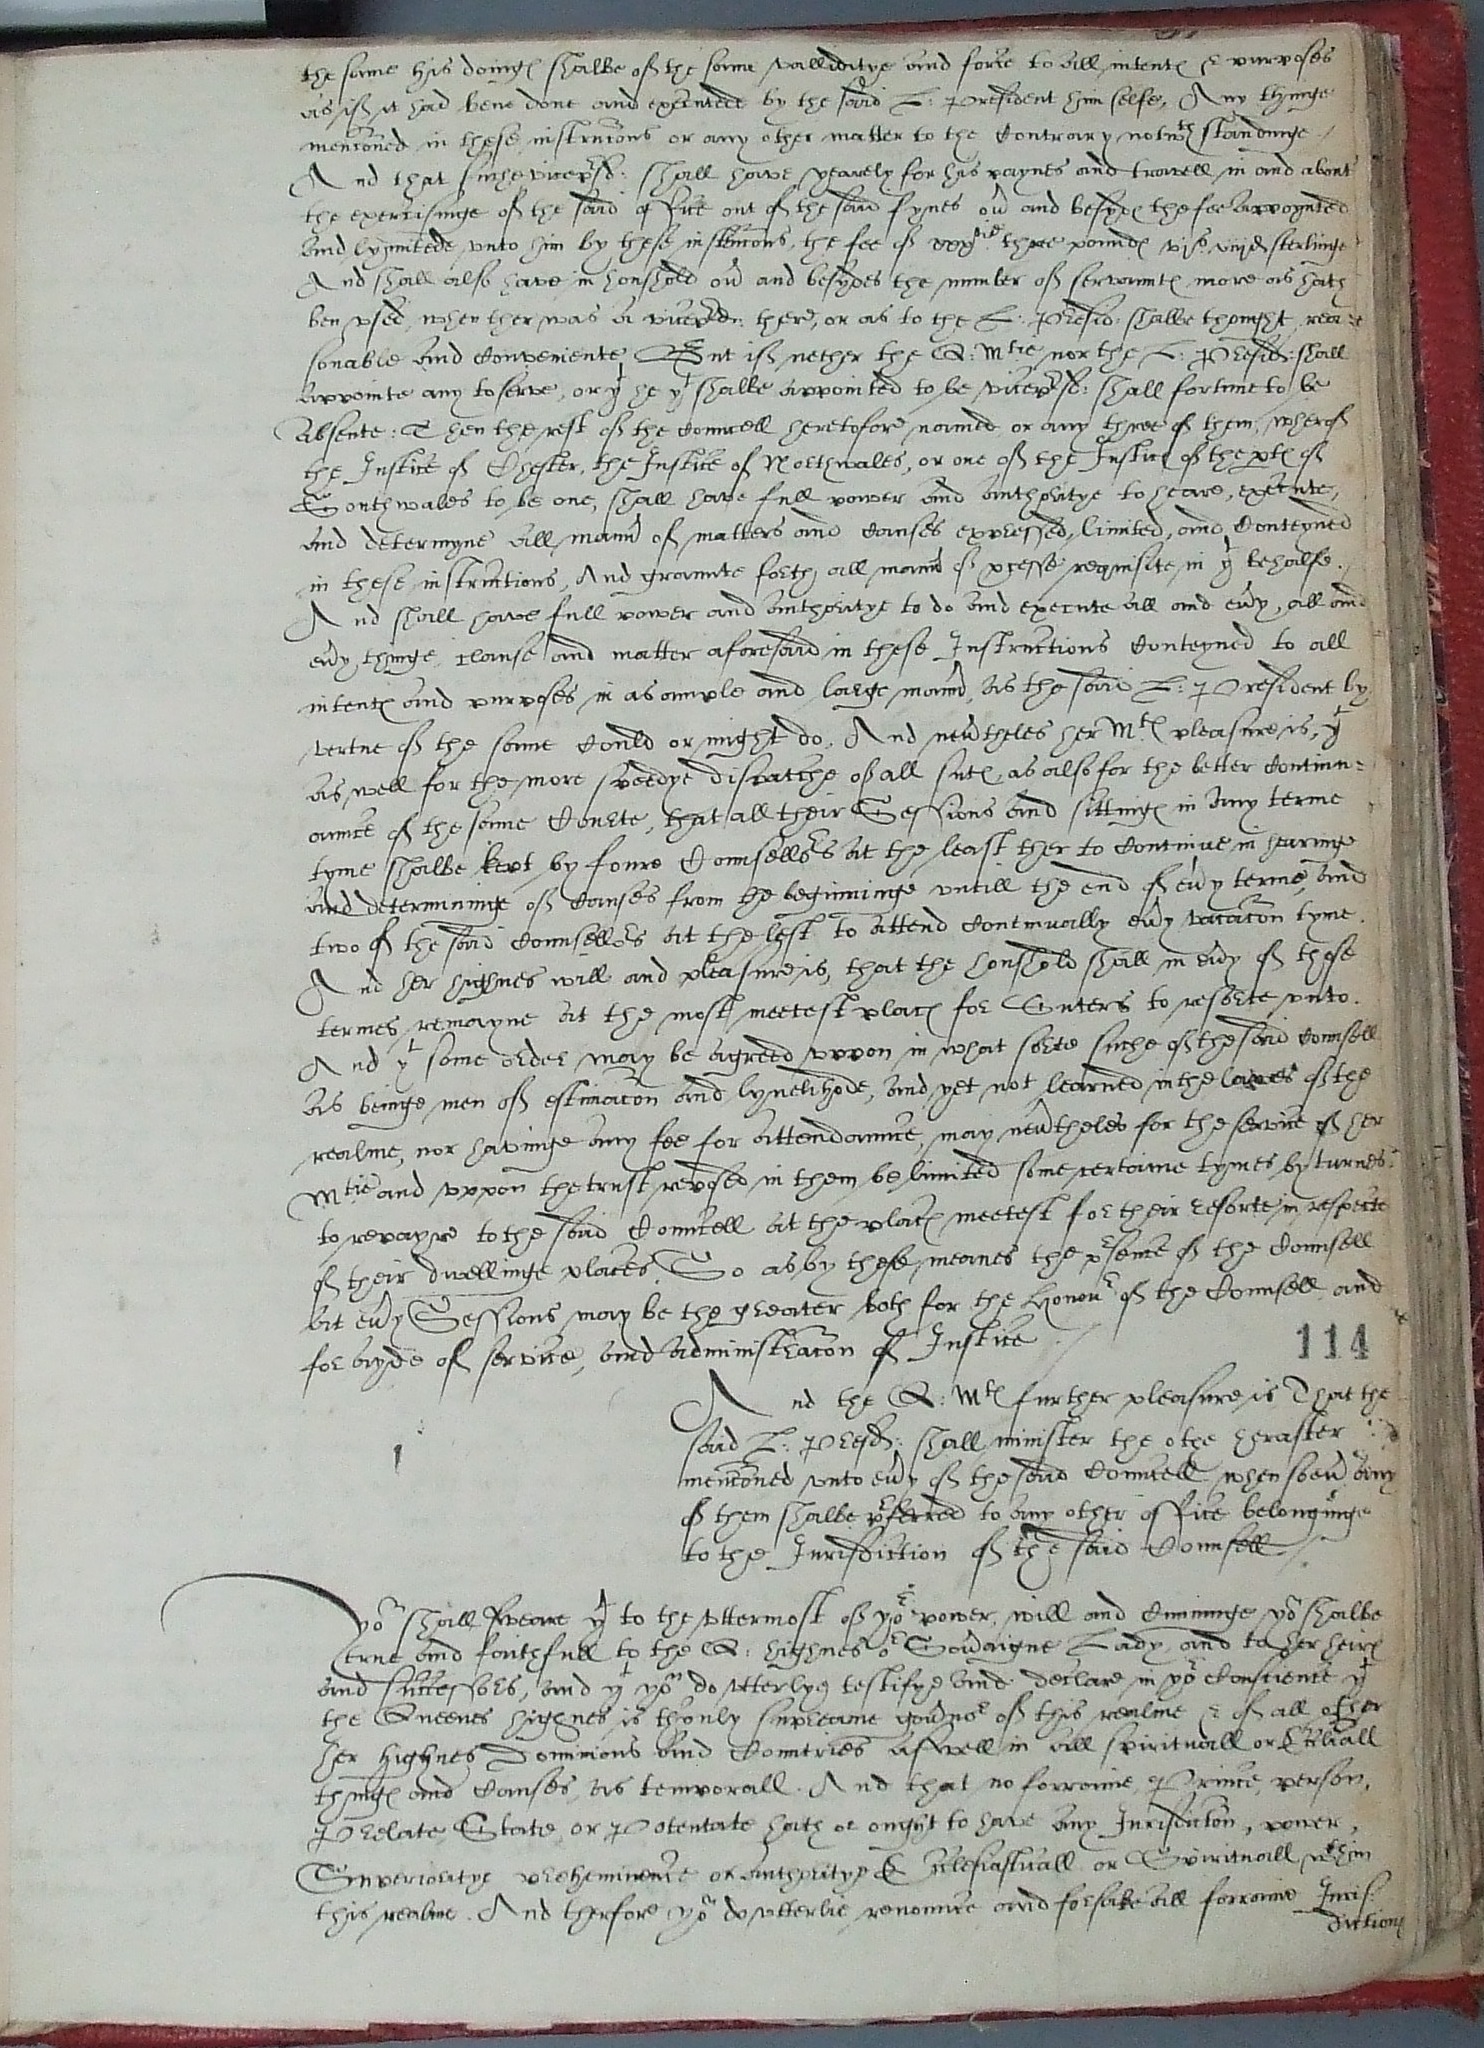 the same his doings shalbe of the same validitye and force to all intents & purposes
as if it had bene done and executede by the said L: President him selfe, Any thinge
mencioned in these instrucions or any other matter to the contrary notwth standinge /
And that suche vicepresid: shall have yearely for his paynes and travell in and about
the exercisinge of the said office out of the said fynes ou and besyds the fee appoynted
and lymitede vnto him by these instrucions, the fee of three pounds vjs viijd sterlinge
And shall also have in houshold ou and besydes the number of servaunts more as hath
ben vsed, when ther was a vicepresid: there, or as to the L: Presid: shalbe thought rea=
sonable and conveniente. But if nether the Q: Mtie nor the L: Presid: shall
appointe any to serve, or yf he yt shalbe appointed to be vicepresd: shall fortune to be
Absente: Then the rest of the councell heretofore named or any three of them, wherof
the Justice of Chester, the Justice of Northwales, or one of the Justics of the pts of
Southwales to be one, shall have full power and authoritye to heare, execute,
and determyne all mann of matters and causes expressed, limited, and conteyned
in these instructions, And graunte forth all mann of pcesse requisite in yt behalfe.
And shall have full power and authoritye to do and execute all and eudy, all and
eudy thinge clause and matter aforesaid in these Instructions conteyned to all
intents and purposes in as ample and large mann, as the said L: President by
vertue of the same could or might do. And neutheles her Mts pleasure is, yt
as well for the more speedye dispatche of all suts, as also for the better continu=
aunce of the same Courte, that all their Sessions and sittings in any terme
tyme shalbe kept by foure Counsellors at the least ther to continue in hearinge
and determininge of causes from the beginninge vntill the end of eudy terme, and
two of the said counsellors at the lest to attend continually eudy vacacon tyme.
And her highnes will and pleasure is, that the houshold shall in eudy of those
termes remayne at the most meetest placs for Suters to resorte vnto.
And yt some order may be agreed vppon in what sorte suche of the said counsell
as beinge men of estimacon and lyvelihode, and yet not learned in the lawes of the
realme, nor havinge any fee for attendaunce, may neutheles for the service of her
Mtie and vppon the trust reposed in them be limited some certaine tymes by turnes
to repayre to the said Councell at the placs meetest for their resorte in respecte
of their dwellinge places. So as by these meanes the psence of the Counsell
at eudy Sessions may be the greater both for the Honour of the Counsell and
for ayde of service, and administracon of Justice /
114
And the Q: Mts further pleasure is That the
said L: Presd: shall minister the othe herafter
mencioned vnto eudy of the said Councell when soeu any
of them shalbe pferred to any other office belonginge
to the Jurisdiction of the said Counsell /
You shall sweare yt to the vttermost of yor power, will and cuninge you shalbe
true and faithfull to the Q: highnes or Souaigne Lady and to her heirs
and successors, and yt you do vtterlye testifye and declare in yor conscience yt
the Queenes highnes is thonly supreame gouno of this realme & of all other
her highnes Dominions and Countries aswell in all spirituall or Ecclicall
things and causes, as temporall. And that no forraine Prince, person,
Prelate, State, or Potentate hath or ought to have any Jurisdicton, power,
Superioritye preheminence or authoritye Ecclesiasticall or Spirituall wthin
this realme. And therfore you do vtterlie renounce and forsake all forraine Juris=
dictions